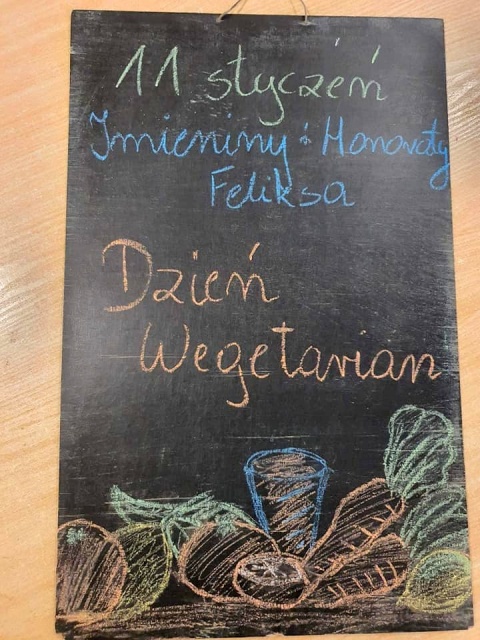 11 styczeń
Imieniny: Honoraty
Feliksa
Dzień
Wegetarian